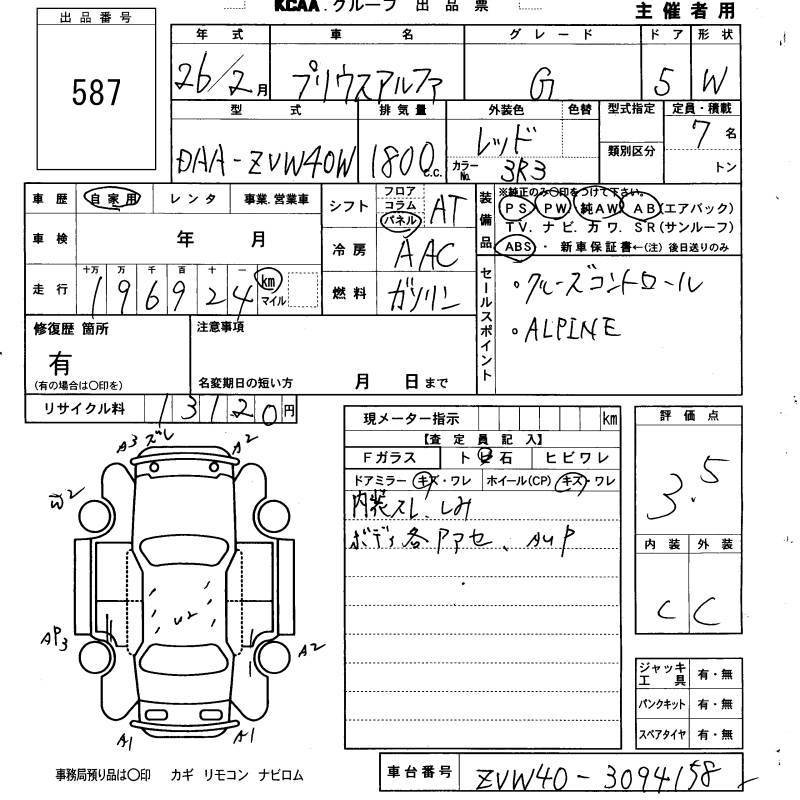 KCAA.グループ 出品票
主催者用
出品番号
587
年式 車名 グレード ドア 形状
26/2月 プリウスアルファ G 5 W
型式 排気量 外装色 色替 型式指定 定員・積載
DAA-ZVW40W 1800c.c. レッド 7名
カラーNo. 3R3 類別区分 トン
車歴 自家用 レンタ 事業.営業車
車検 年 月
走行 十万 万 千 百 十 一
196924 km マイル
シフト フロア コラム パネル AT
冷房 AAC
燃料 ガソリン
装備品
※純正のみ〇印をつけて下さい。
PS PW. 純AW. AB(エアバック)
TV. ナビ. カワ. SR(サンルーフ)
ABS・ 新車保証書←(注)後日送りのみ
セールスポイント
・クルーズコントロール
・ALPINE
修復歴 箇所
有
(有の場合は〇印を)
注意事項
名変期日の短い方 月 日まで
リサイクル料 13120円
現メーター指示 km
【査定員記入】
Fガラス トビ石 ヒビワレ
ドアミラー キズ・ワレ ホイール(CP) キズ・ワレ
内装スレ、しみ
ボディ各アアセ、AUP
評価点
3.5
内装 外装
C C
ジャッキ工具 有・無
パンクキット 有・無
スペアタイヤ 有・無
A3 ズレ A2
W2
U2
AP3 A2
A1 A1
事務局預り品は〇印 カギ リモコン ナビロム
車台番号 ZVW40-3094158